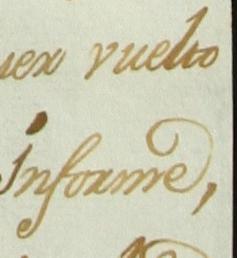 uex vuelto
Informe,